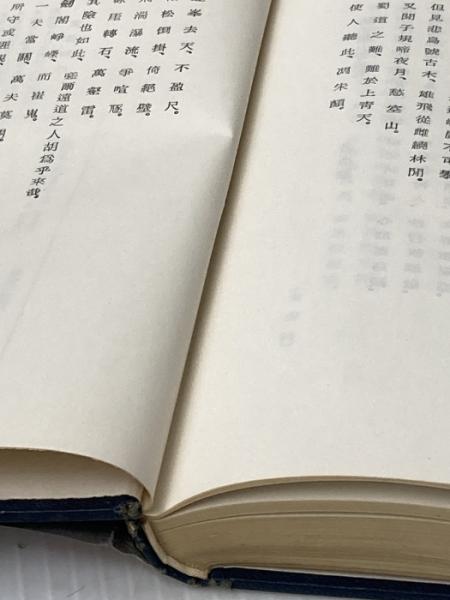 不可攀
但見悲鳥號古木、雄飛從雌繞林間。
又聞子規啼夜月、愁空山。
蜀道之難、難於上青天。
使人聽此凋朱顏。
峯去天、不盈尺。
松倒掛、倚絕壁。
湍瀑流、爭喧豗。
厓轉石、萬壑雷。
其險也如此、嗟爾遠道之人胡爲乎來哉。
劍閣崢嶸、而崔嵬。
一夫當關、萬夫莫開。
所守或匪親